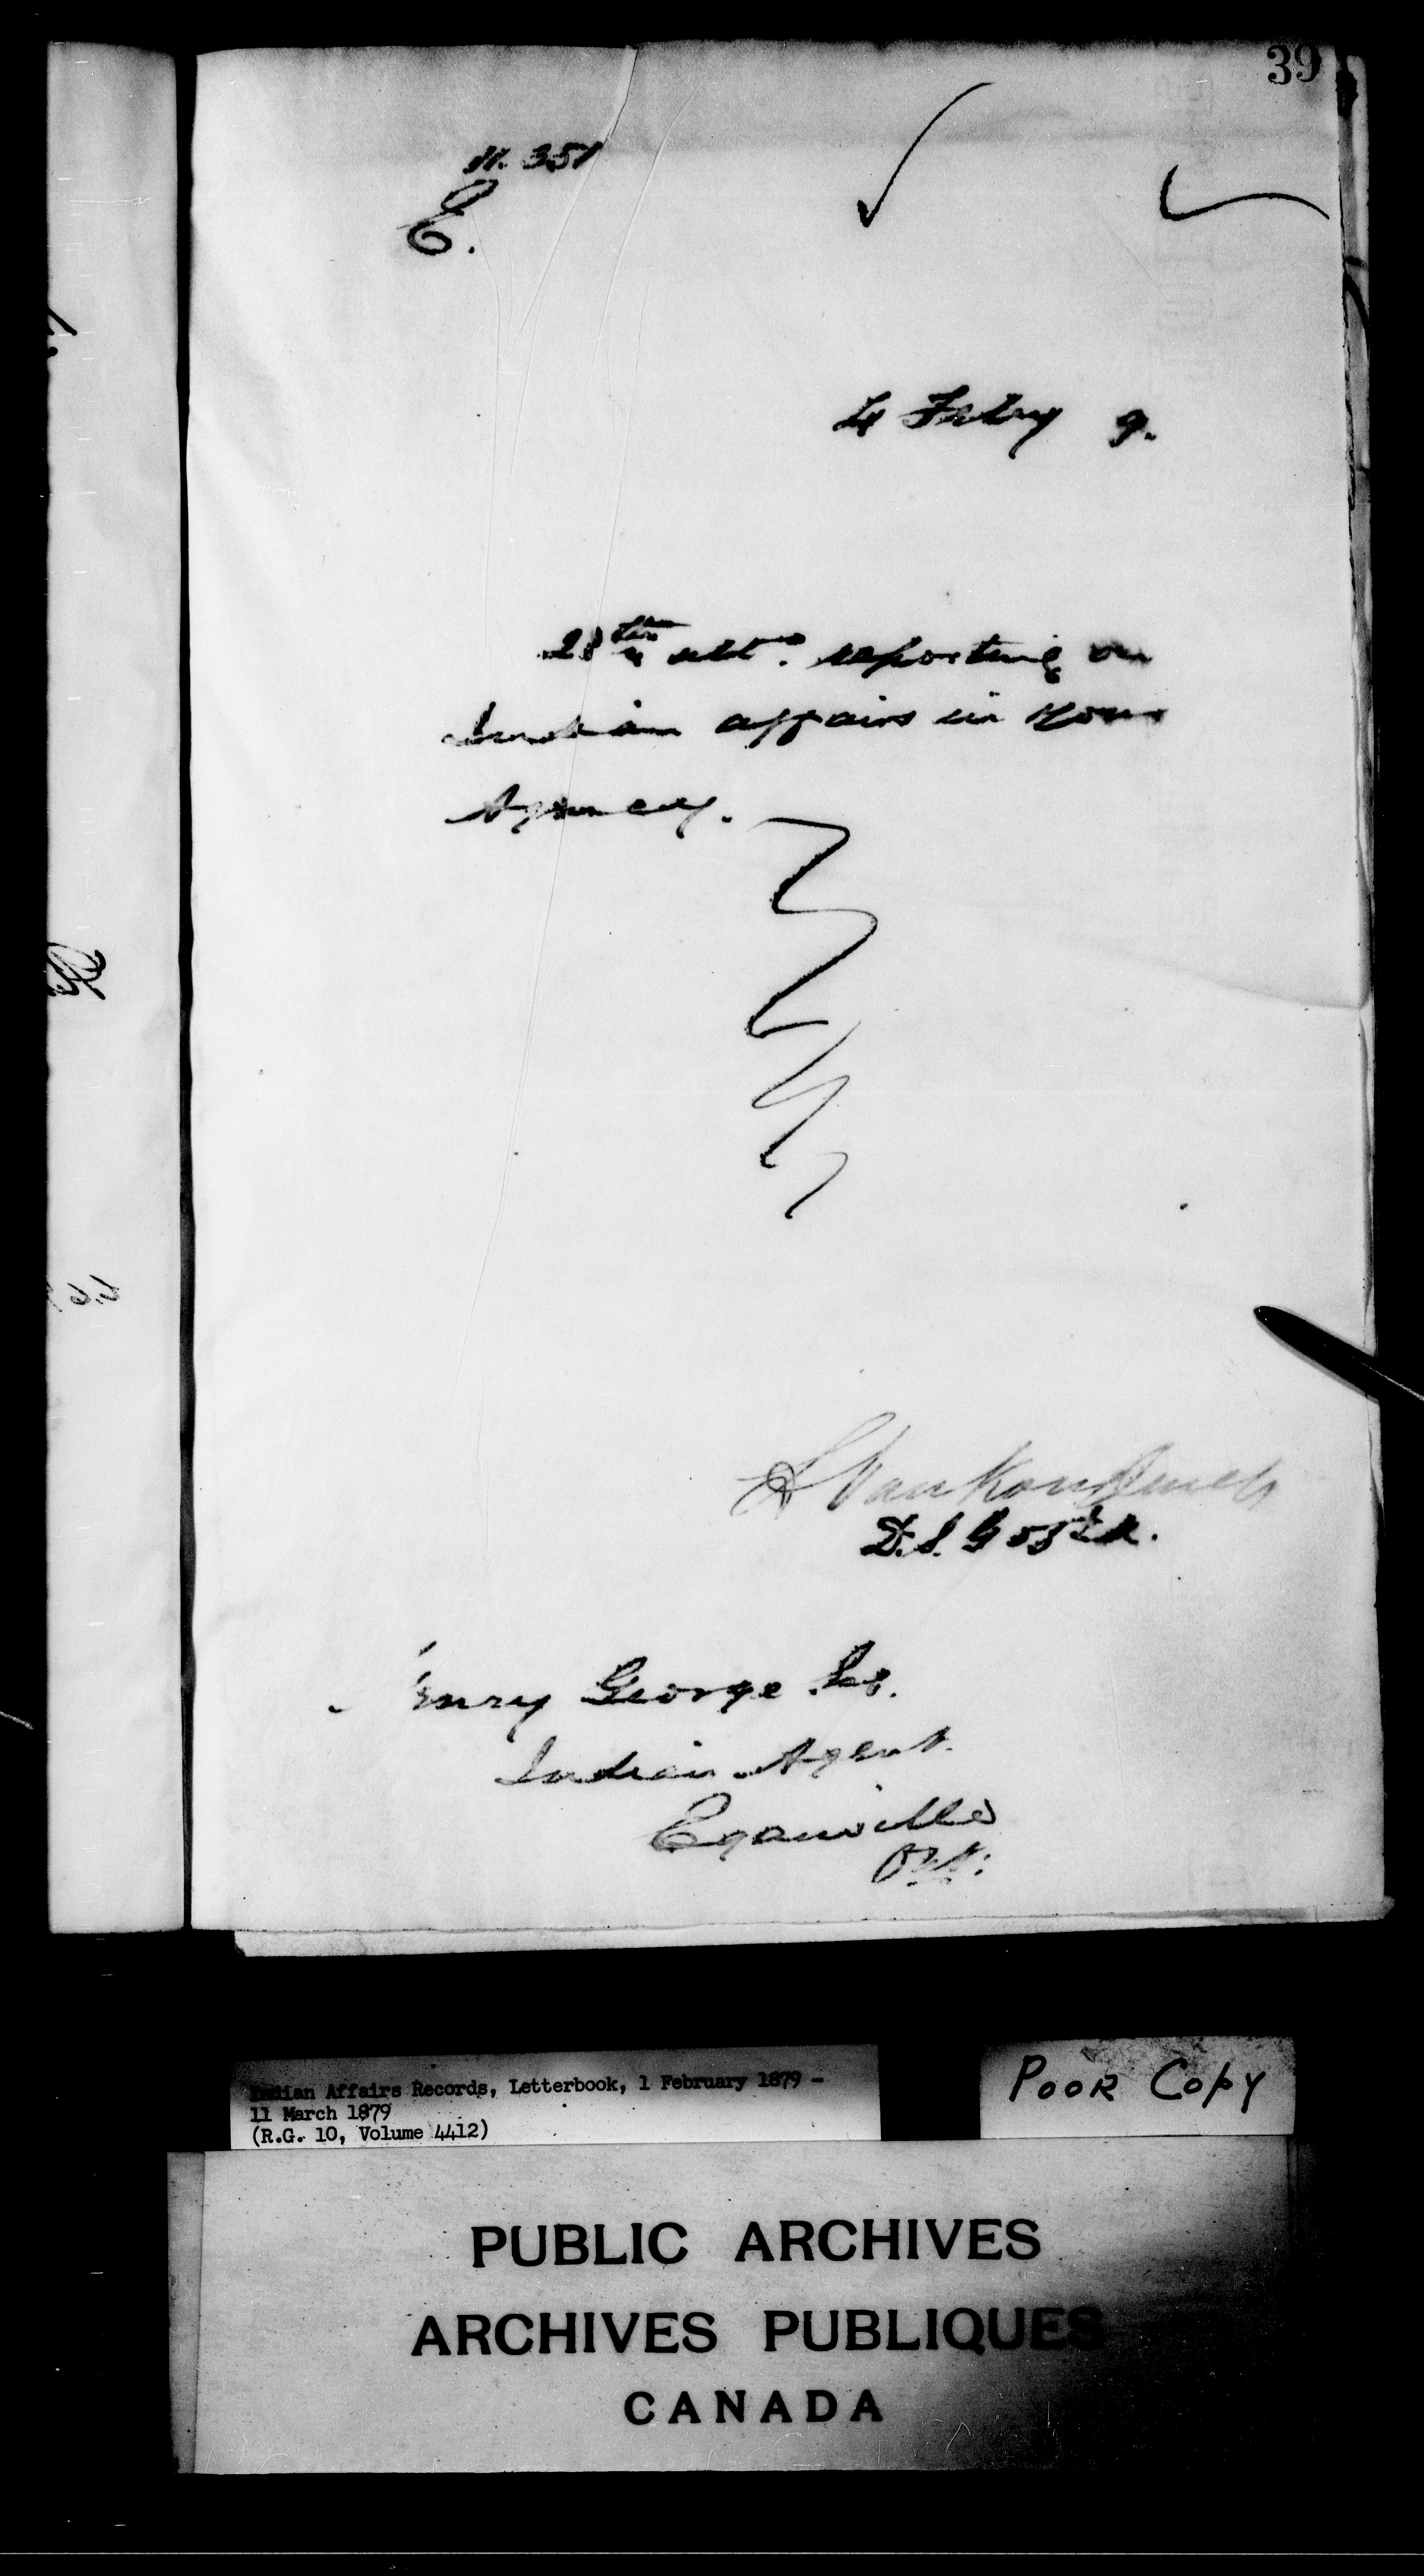 39
11.351
E.
4 Febry 9.
28th ult. reporting on
Indian affairs in Your
Agency.
L Vankoughnet
D.S.G of I.A.
enry George
Indian Agent.
Eganville
Ont:
Indian Affairs Records, Letterbook, 1 February 1879 -
11 March 1879
(R.G. 10, Volume 4412)
POOR COPY
PUBLIC ARCHIVES
ARCHIVES PUBLIQUES
CANADA